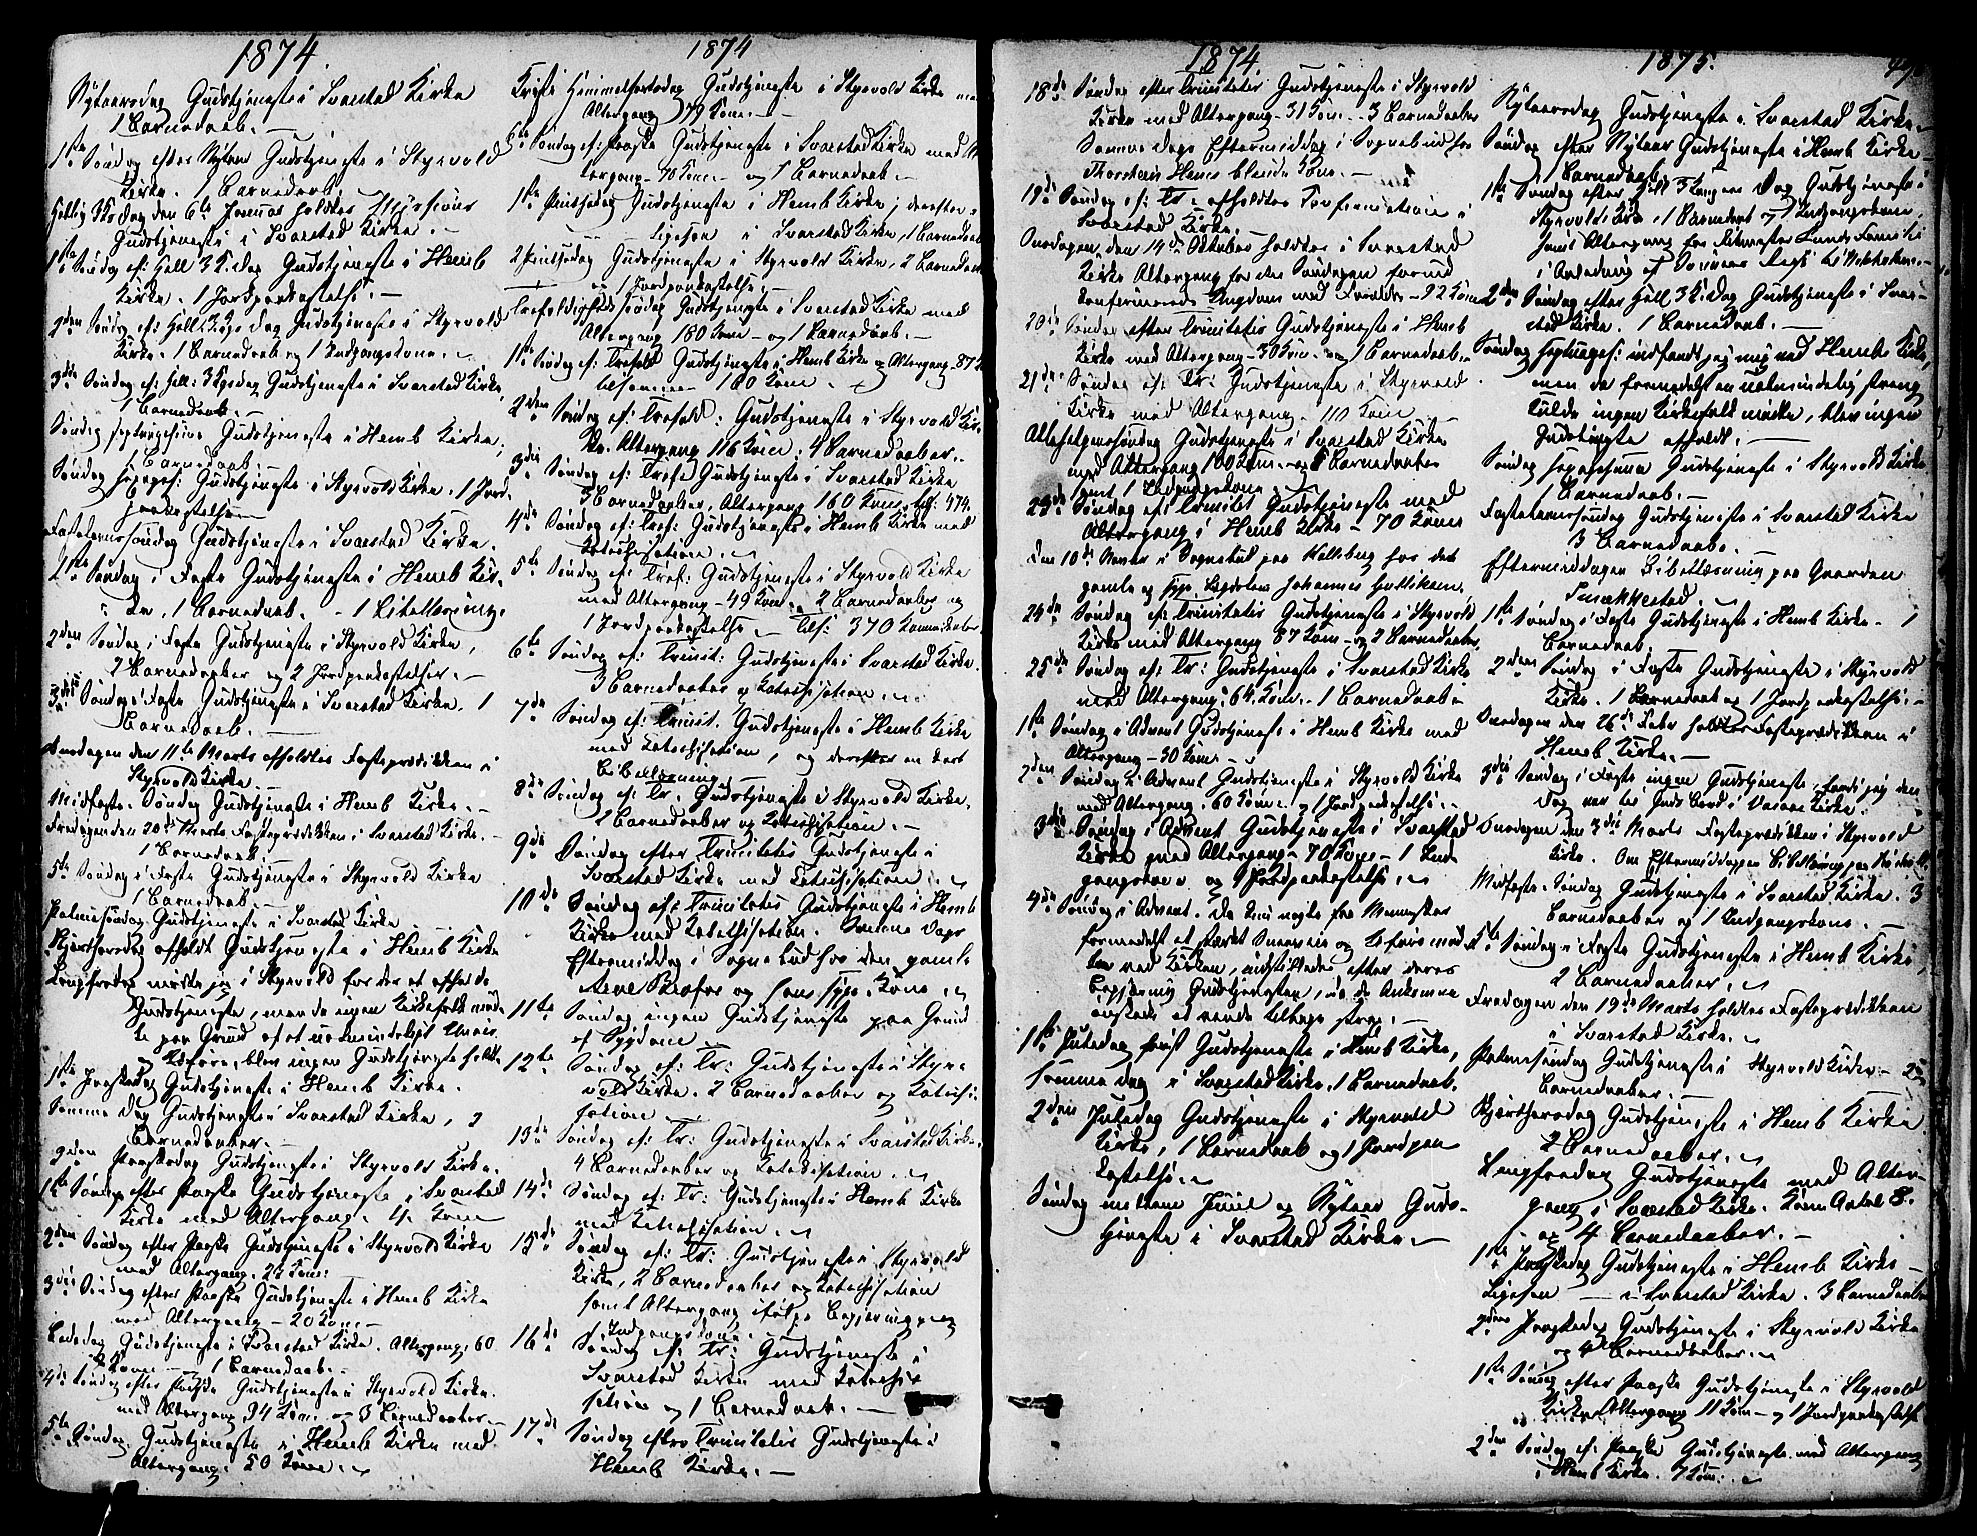 1874
Nytaarsdag Gudstjeneste i Svarstad Kirke
1 Barnedaab. —
1ste Søndag efter Nytaar Gudstjeneste i Styrvold
Kirke. 1 Barnedaab.
Hellig 3K. Dag den 6te Januar holdtes Missions
Gudstjeneste i Svarstad Kirke. —
1ste Søndag ef: Hell 3K. Dag Gudstjeneste i Hemb
Kirke. 1 Jordpaakastelse. —
2den Søndag ef: Hell. 3Kgs Dag Gudstjeneste i Styrvold
Kirke. 1 Barnedaab og 1 Indgangskone. —
3die Søndag ef: Hell: 3Kgsdag Gudstjeneste i Svarstad Kirke,
1 Barnedaab. —
Søndag septuagesima Gudstjeneste i Hemb Kirke,
1 Barnedaab —
Søndag Sexages: Gudstjeneste i Styrvold Kirke. 1 Jord-
paakastelse —
Fastelavnssøndag Gudstjeneste i Svarstad Kirke.
1ste Søndag i Faste Gudstjeneste i Hemb Kir-
ke, 1 Barnedaab. - 1 Bibellæsning.
2den Søndag i Faste Gudstjeneste i Styrvold Kirke,
2 Barnedaaber og 2 Jordpaakastelser. —
3die Søndag i Faste Gudstjeneste i Svarstad Kirke. 1
Barnedaab. —
Onsdagen den 11te Marts afholdtes Fasteprædikken i
Styrvold Kirke. —
Midfaste-Søndag Gudstjeneste i Hemb Kirke. —
Fredagen den 20de Marts Fasteprædikken i Svarstad Kirke. —
1 Barnedaab. —
5te Søndag i Faste Gudstjeneste i Styrvold Kirke
1 Barnedaab. —
Palmesøndag Gudstjeneste i Svarstad Kirke
Skjærthorsdag afholdt Gudstjeneste i Hemb Kirke
Langfredag mødte jeg i Styrvold for der at afholde
Gudstjeneste, men da ingen Kirkefolk mød-
te paa Grund af et ualmindeligt Uveir
og Uføre, blev ingen Gudstjeneste holdt.
1ste Paaskedag Gudstjeneste i Hemb Kirke.
Samme Dag Gudstjeneste i Svarstad Kirke, 2
Barnedaaber. —
2den Paaskedag Gudstjeneste i Styrvold Kirke.
1ste Søndag efter Paaske Gudstjeneste i Svarstad
Kirke med Altergang. 4 Kom
2den Søndag efter Paaske Gudstjeneste i Styrvold Kirke
med Altergang. 27 Kom:
3die Søndag efter Paaske Gudstjeneste i Hemb Kirke
med Altergang - 20 Kom. —
Bededag Gudstjeneste i Svarstad Kirke. Altergang, 60
Kom — 1 Barnedaab. —
4de Søndag efter Paaske Gudstjeneste i Styrvold Kirke.
med Altergang 34 Kom. og 3 Barnedaaber —
5te Søndag Gudstjeneste i Hemb Kirke med
Altergang. 50 Kom. —
1874
Kristi Himmelfartsdag Gudstjeneste i Styrvold Kirke med
Altergang 79 Kom. —
Søndag ef: Paaske Gudstjeneste i Svarstad Kirke med Al-
tergang - 76 Kom. - og 1 Barnedaab. —
1ste Pintsedag Gudstjeneste i Hemb Kirke; derefter
ligesaa i Svarstad Kirke, 1 Barnedaab
2 Pintsedag Gudstjeneste i Styrvold Kirke, 2 Barnedaab
og 1 Jordpaakastelse. —
Trefoldigheds søndag Gudstjeneste i Svarstad Kirke med
Altergang 180 Kom - og 1 Barnedaab. —
1ste Søndag ef: Trefold Gudstjeneste i Hemb Kirke og Altergang - 87
tilsammen 180 Kom.
2den Søndag ef: Trefold: Gudstjeneste i Styrvold Kir-
ke. Altergang 116 Kom: 4 Barnedaaber. —
3die Søndag ef: Tref: Gudstjeneste i Svarstad Kirke
3 Barnedaaber, Altergang 160 Kom. tils: 474.
4de Søndag ef: Tref: Gudstjeneste i Hemb Kirke med
Katechisation. —
5te Søndag ef: Tref: Gudstjeneste i Styrvold Kirke
med Altergang - 49 Kom. 2 Barnedaaber og
1 Jordpaakastelse — Tils: 370 Kommunikanter
6te Søndag ef: Trinit: Gudstjeneste i Svarstad Kirke.
3 Barnedaaber og Katechisation. —
7de Søndag ef: Trinit. Gudstjeneste i Hemb Kirke
med Katechisation, og derefter en kort
Bibellæsning. —
8de Søndag ef: Tr. Gudstjeneste i Styrvold Kirke,
1 Barnedaaber og Katechisation. —
9de Søndag efter Trinitatis Gudstjeneste i
Svarstad Kirke med Katechisation. —
10de Søndag ef: Trinitatis Gudstjeneste i Hemb
Kirke med Katechisation. Samme Dags
Eftermiddag i Sognebud hos den gamle
og hans syge Kone. —
11te Søndag ingen Gudstjeneste paa Grund
af Sygdom.
12te Søndag ef: Tr: Gudstjeneste i Styr-
vold Kirke. 2 Barnedaaber og Katechi-
sation —
13de Søndag ef: Tr: Gudstjeneste i Svarstad Kirke,
4 Barnedaaber og Katechisation —
14de Søndag ef: Tr: Gudstjeneste i Hemb Kirke
med Katechisation. —
15de Søndag ef: Tr: Gudstjeneste i Styrvold
Kirke, 2 Barnedaaber og Katechisation
samt Altergang ifølge Begjæring
af Indgangskone. —
16de Søndag ef: Tr: Gudstjeneste i
Svarstad Kirke med Katechi-
sation og 1 Barnedaab. —
17de Søndag efter Trinitatis Gudstjeneste i
Hemb Kirke. —
1874
18de Søndag efter Trinitatis Gudstjeneste i Styrvold
Kirke med Altergang - 31 Kom. - 3 Barnedaaber
Samme Dags Eftermiddag i Sognebud hos
Thorstein Hems blinde Kone. —
19de Søndag ef: Tr: afholdtes Confirmation i
Svarstad Kirke. —
Onsdagen den 14de Oktober holdtes i Svarstad
Kirke Altergang for den Søndagen forud
konfirmerede Ungdom med Forældre - 92 Kom
20de Søndag efter Trinitatis Gudstjeneste i Hemb
Kirke med Altergang - 30 Kom. og 1 Barnedaab. —
21de Søndag ef: Tr: Gudstjeneste i Styrvold
Kirke med Altergang. 110 Kom
Allehelgenssøndag Gudstjeneste i Svarstad Kirke
med Altergang 100 Kom. og 8 Barnedaaber
samt 1 Indgangskone. —
23de Søndag ef: Trinitat: Gudstjeneste med
Altergang i Hemb Kirke - 70 Kom
Den 10de Novbr i Sognebud paa Kolleberg hos det
gamle og syge Johannes
24de Søndag ef: Trinitatis Gudstjeneste i Styrvold
Kirke med Altergang 87 Kom - og 2 Barnedaaber,
25de Søndag ef: Tr: Gudstjeneste i Svarstad Kirke
med Altergang: 64 Kom. - 1 Barnedaab -
1ste Søndag i Advent Gudstjeneste i Hemb Kirke med
Altergang - 30 Kom. —
2den Søndag i Advent Gudstjeneste i Styrvold Kirke
med Altergang. 60 Kom. og 1 Jordpaakastelse. —
3die Søndag i Advent Gudstjeneste i Svarstad
Kirke med Altergang - 70 Kom - 1 Ind-
gangskone og 1 Jordpaakastelse. —
4de Søndag i Advent. Da kun nogle faa Mennesker
formedelst et stærkt Sneeveir og Uføre mød-
te ved Kirken, indstilledes efter deres
Begjæring Gudstjenesten, da de Ankomne
ønskede at vende tilbage strax. —
1ste Juledag først Gudstjeneste i Hemb Kirke,
samme dag i Svarstad Kirke. 1 Barnedaab.
2den Juledag Gudstjeneste i Styrvold
Kirke, 1 Barnedaab og 1 Jordpaa
kastelse. —
Søndag mellem Juul og Nytaar Guds-
tjeneste i Svarstad Kirke. —
1875.
Nytaarsdag Gudstjeneste i Svarstad Kirke —
Søndag efter Nytaar Gudstjeneste i Hemb Kirke —
1 Barnedaab.
1ste Søndag efter Hell 3 Konges Dag Gudstjeneste i
Styrvold Kirke, 1 Barnedaab og 1 Indgangskone,
samt Altergang for Ritmester Lunds Familie
i Anledning af Sønnens
2den Søndag efter Hell 3K. Dag Gudstjeneste i Svar-
stad Kirke. 1 Barnedaab. —
Søndag Septuages: indfandt jeg mig ved Hemb Kirke,
men da formedelst en ualmindelig streng
Kulde ingen Kirkefolk mødte, blev ingen
Gudstjeneste afholdt. —
Søndag Sexagesima Gudstjeneste i Styrvold Kirke
1 Barnedaab. —
Fastelavnssøndag Gudstjeneste i Svarstad Kirke
3 Barnedaab. —
Eftermiddagen Bibellæsning paa Gaarden
Smukkestad. —
1ste Søndag i Faste Gudstjeneste i Hemb Kirke - 1
Barnedaab.
2den Søndag i Faste Gudstjeneste i Styrvold
Kirke. 1 Barnedaab og 1 Jordpaakastelse. —
Onsdagen den 26de Febr holdtes Fasteprædikken i
Hemb Kirke. —
3die Søndag i Faste ingen Gudstjeneste, fordi jeg den
Dag var til Guds Bord i Kirke.
Onsdagen den 3die Marts Fasteprædikken i Styrvold
Kirke. Om Eftermiddagen Bibellæsning paa
Midfaste-Søndag Gudstjeneste i Svarstad Kirke. 3
Barnedaaber og 1 Indgangskone. —
5te Søndag i Faste Gudstjeneste i Hemb Kirke,
2 Barnedaaber. —
Fredagen den 19de Marts holdtes Fasteprædikken
i Svarstad Kirke. —
Palmesøndag Gudstjeneste i Styrvold Kirke - 2
Barnedaaber. —
Skjærthorsdag Gudstjeneste i Hemb Kirke
2 Barnedaaber. —
Langfredag Gudstjeneste med Alter-
gang i Svarstad Kirke. Kom: Antal 8.
og 4 Barnedaaber. —
1ste Paaskedag Gudstjeneste i Hemb Kirke —
Ligesaa — i Svarstad Kirke. 3 Barnedaaber
2den Paaskedag Gudstjeneste i Styrvold Kirke
og 4 Barnedaaber. —
1ste Søndag efter Paaske Gudstjeneste i Styrvold
Kirke. Altergang 11 Kom - og 1 Jordpaakastelse
2den Søndag ef: Paaske Gudstjeneste med Altergang
i Hemb Kirke. 7 Kom: —